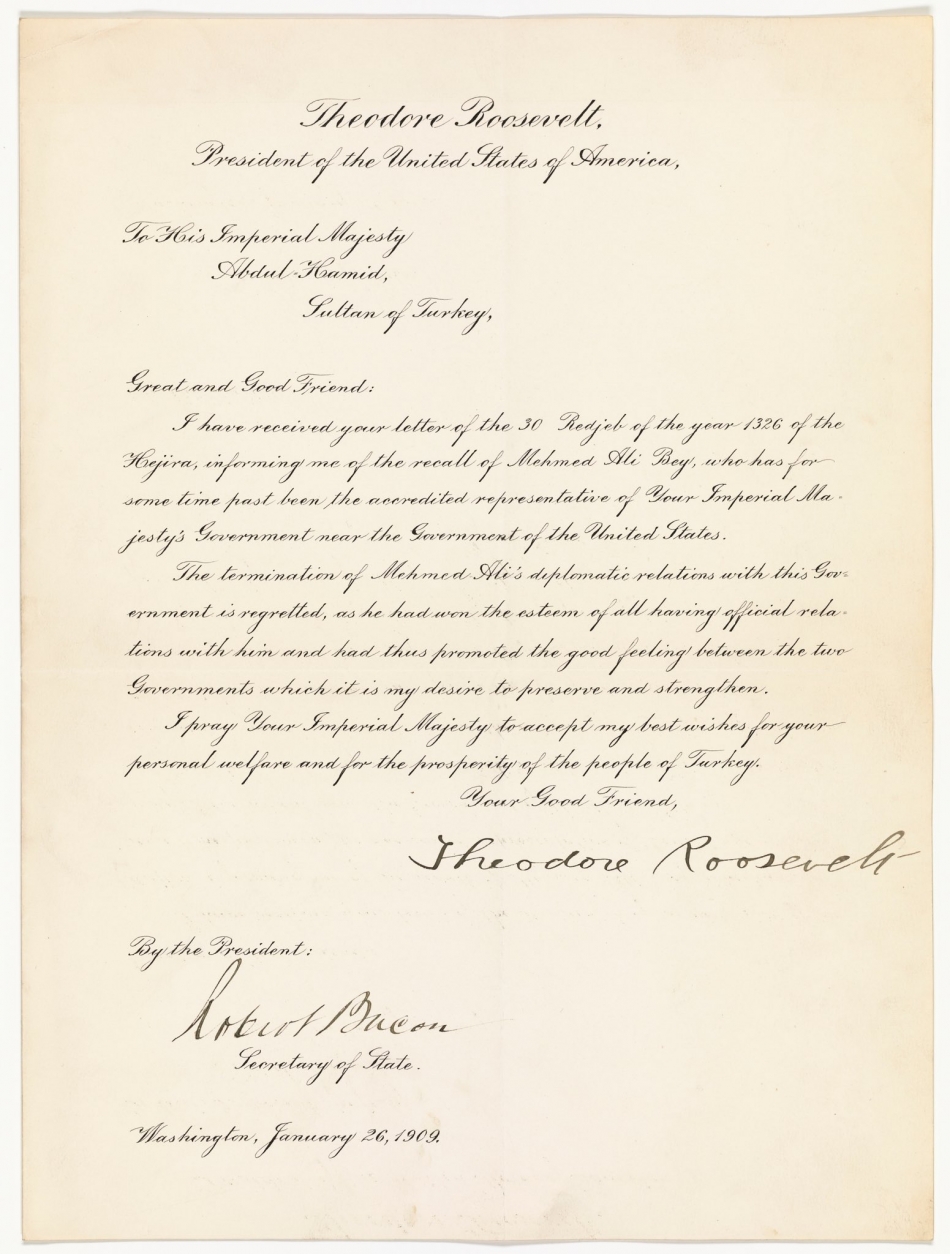 Theodore Roosevelt,
President of the United States of America,
To His Imperial Majesty
Abdul-Hamid,
Sultan of Turkey,
Great and Good Friend:
I have received your letter of the 30 Redjeb of the year 1326 of the
Hejira, informing me of the recall of Mehmed Ali Bey, who has for
some time past been the accredited representative of Your Imperial Ma-
jesty's Government near the Government of the United States.
The termination of Mehmed Ali's diplomatic relations with this Gov-
ernment is regretted, as he had won the esteem of all having official rela-
tions with him and had thus promoted the good feeling between the two
Governments which it is my desire to preserve and strengthen.
I pray Your Imperial Majesty to accept my best wishes for your
personal welfare and for the prosperity of the people of Turkey.
Your Good Friend,
Theodore Roosevelt
By the President:
Robert Bacon
Secretary of State.
Washington, January 26, 1909.